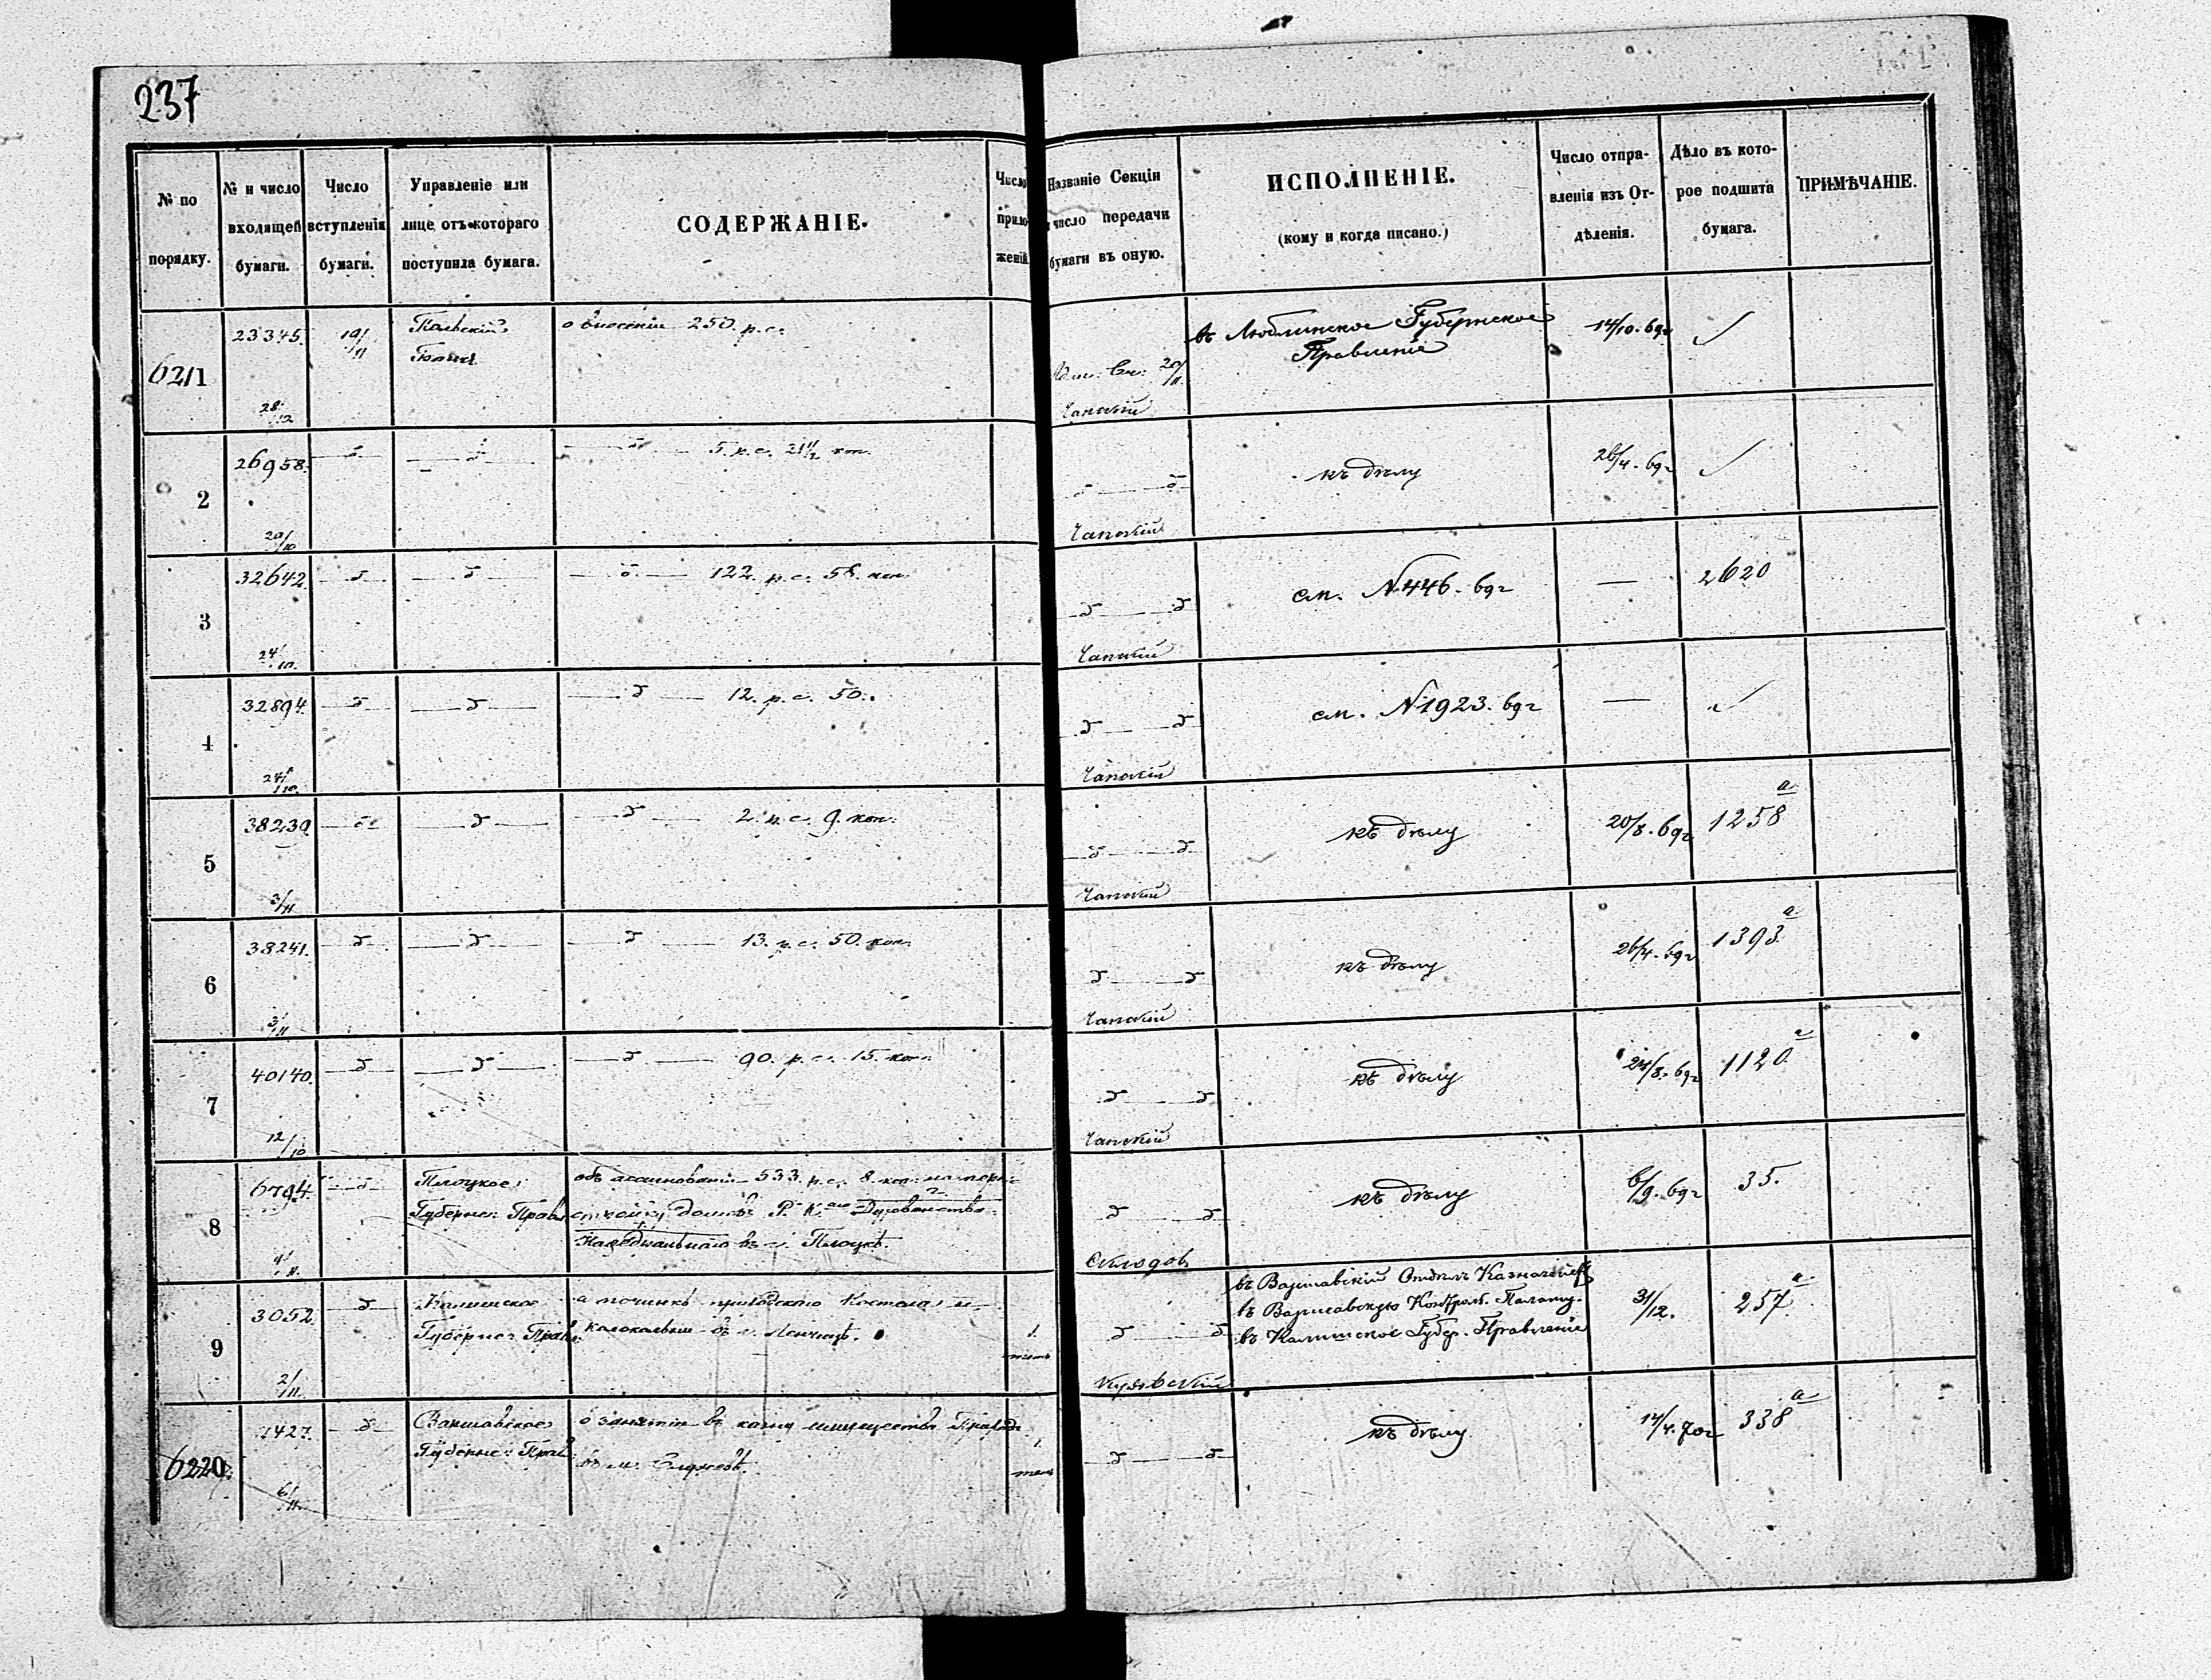 237
№ по порядку.
№ и число входящей бумаги.
Число вступленія бумаги.
Управленіе или лице, отъ котораго поступила бумага.
СОДЕРЖАНІЕ.
Число приложеній
Названіе Секціи и число передачи бумаги въ оную.
ИСПОЛНЕНІЕ.
(кому и когда писано.)
Число отправленія изъ Отдѣленія.
Дѣло въ которое подшита бумага.
ПРИМѢЧАНІЕ.
6211
23345.
28/12
19/11
Польскій
Банкъ
о внесеніи 250. р. с.
20/11
Чапскій
въ Люблинское Губернское
Правленіе
14/10. 69 г
2
26958.
20/10
5. р. с. 21 1/2 коп.
Чапскій
къ дѣлу
26/4. 69 г
3
32642.
24/10.
122. р. с. 58. коп.
Чапскій
см. № 446. 69 г
2620
4
32894.
24/10.
12. р. с. 50.
Чапскій
см. № 1923. 69 г
5
38239.
3/11.
2. р. с. 9. коп.
Чапскій
къ дѣлу
20/8. 69 г
1258 а
6
38241.
3/11
13. р. с. 50. коп.
Чапскій
къ дѣлу
26/4. 69 г
1393. а
7
40140.
12/10
90. р. с. 15. коп.
Чапскій
къ дѣлу
24/8. 69 г
1120. а
8
6794.
4/11.
Плоцкое
Губернс. Правл
объ ассигнованіи 533. р. с. 8. коп. на пере-
стройку домовъ Р. К. Духовенства
въ г. Плоцкѣ.
къ дѣлу
6/9. 69 г
35.
9
3052.
2/11.
Калишское
Губернс. Правл.
о починкѣ приходскаго Костела и
колокольни въ г. Ленчицѣ.
1.
въ Варшавскій Отдѣлъ Казначейст
въ Варшавскую Контрол. Палату.
въ Калишское Губер. Правленіе
31/12.
257. а
6220.
1427.
6/11.
Варшавское
Губернс. Прав
о занятіи въ казну имущества
въ м.
1.
къ дѣлу
14/4. 70 г
338 а